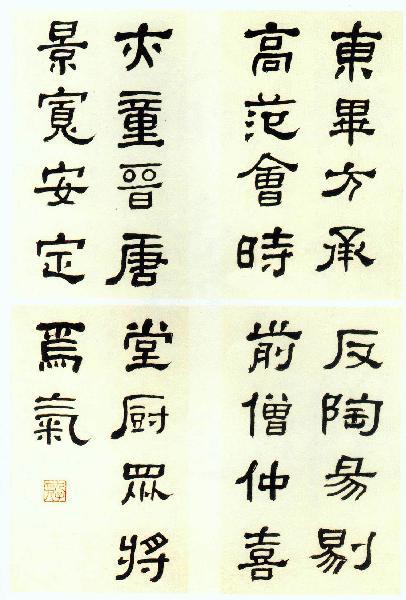 東畢方承
高范會時
亦童晉唐
景寬安定
反陶易剔
前僧仲喜
堂厨眾將
焉氣